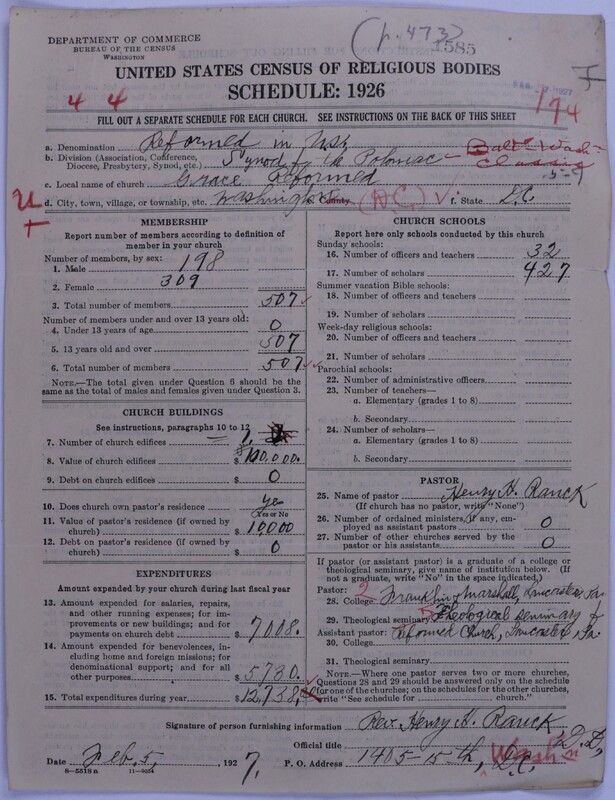 (p. 473)
1585
DEPARTMENT OF COMMERCE
BUREAU OF THE CENSUS
WASHINGTON
UNITED STATES CENSUS OF RELIGIOUS BODIES
SCHEDULE: 1926
4 4
174
FILL OUT A SEPARATE SCHEDULE FOR EACH CHURCH. SEE INSTRUCTIONS ON THE BACK OF THIS SHEET
a. Denomination Reformed in U.S.
b. Division (Association, Conference, Diocese, Presbytery, Synod, etc.) Synod of the Potomac - Balt-Wash- Classis
c. Local name of church Grace Reformed
d. City, town, village, or township, etc. Washington e. County (DC) f. State D.C.
MEMBERSHIP
Report number of members according to definition of
member in your church
Number of members, by sex:
1. Male 198
2. Female 309
3. Total number of members 507
Number of members under and over 13 years old:
4. Under 13 years of age 0
5. 13 years old and over 507
6. Total number of members 507
NOTE.—The total given under Question 6 should be
same as the total of males and females given under Question 3.
CHURCH BUILDINGS
See instructions, paragraphs 10 to 12
7. Number of church edifices 1
8. Value of church edifices $100,000.
9. Debt on church edifices $ 0
10. Does church own pastor's residence yes
Yes or No
11. Value of pastor's residence (if owned by
church) $ 10,000
12. Debt on pastor's residence (if owned by
church) $ 0
EXPENDITURES
Amount expended by your church during last fiscal year
13. Amount expended for salaries, repairs,
and other running expenses; for im-
provements or new buildings; and for
payments on church debt $ 7008.
14. Amount expended for benevolences,
including home and foreign missions; for
denominational support; and for all
other purposes $ 5730.
15. Total expenditures during year $12,738.00
CHURCH SCHOOLS
Report here only schools conducted by this church
Sunday schools:
16. Number of officers and teachers 32
17. Number of scholars 427
Summer vacation Bible schools:
18. Number of officers and teachers
19. Number of scholars
Week-day religious schools:
20. Number of officers and teachers
21. Number of scholars
Parochial schools:
22. Number of administrative officers
23. Number of teachers—
a. Elementary (grades 1 to 8)
b. Secondary
24. Number of scholars—
a. Elementary (grades 1 to 8)
b. Secondary
PASTOR
25. Name of pastor Henry H. Ranck
(If church has no pastor, write "None")
26. Number of ordained ministers, if any, em-
ployed as assistant pastors 0
27. Number of other churches served by the
pastor or his assistants 0
If pastor (or assistant pastor) is a graduate of a college or
theological seminary, give name of institution below. (If
not a graduate, write "No" in the space indicated.)
Pastor:
28. College Franklin & Marshall, Lancaster, Pa.
29. Theological seminary Theological Seminary of
Assistant pastor: Reformed Church, Lancaster, Pa.
30. College
31. Theological seminary
NOTE.—Where one pastor serves two or more churches,
Questions 28 and 29 should be answered only on the schedule
for one of the churches; on the schedules for the other churches,
write "See schedule for church."
Signature of person furnishing information Rev. Henry H. Ranck
Official title D.D.
Date Feb. 5, 1927. P. O. Address 1405-15-th, Wash D.C.
8-5319 a 11-9024